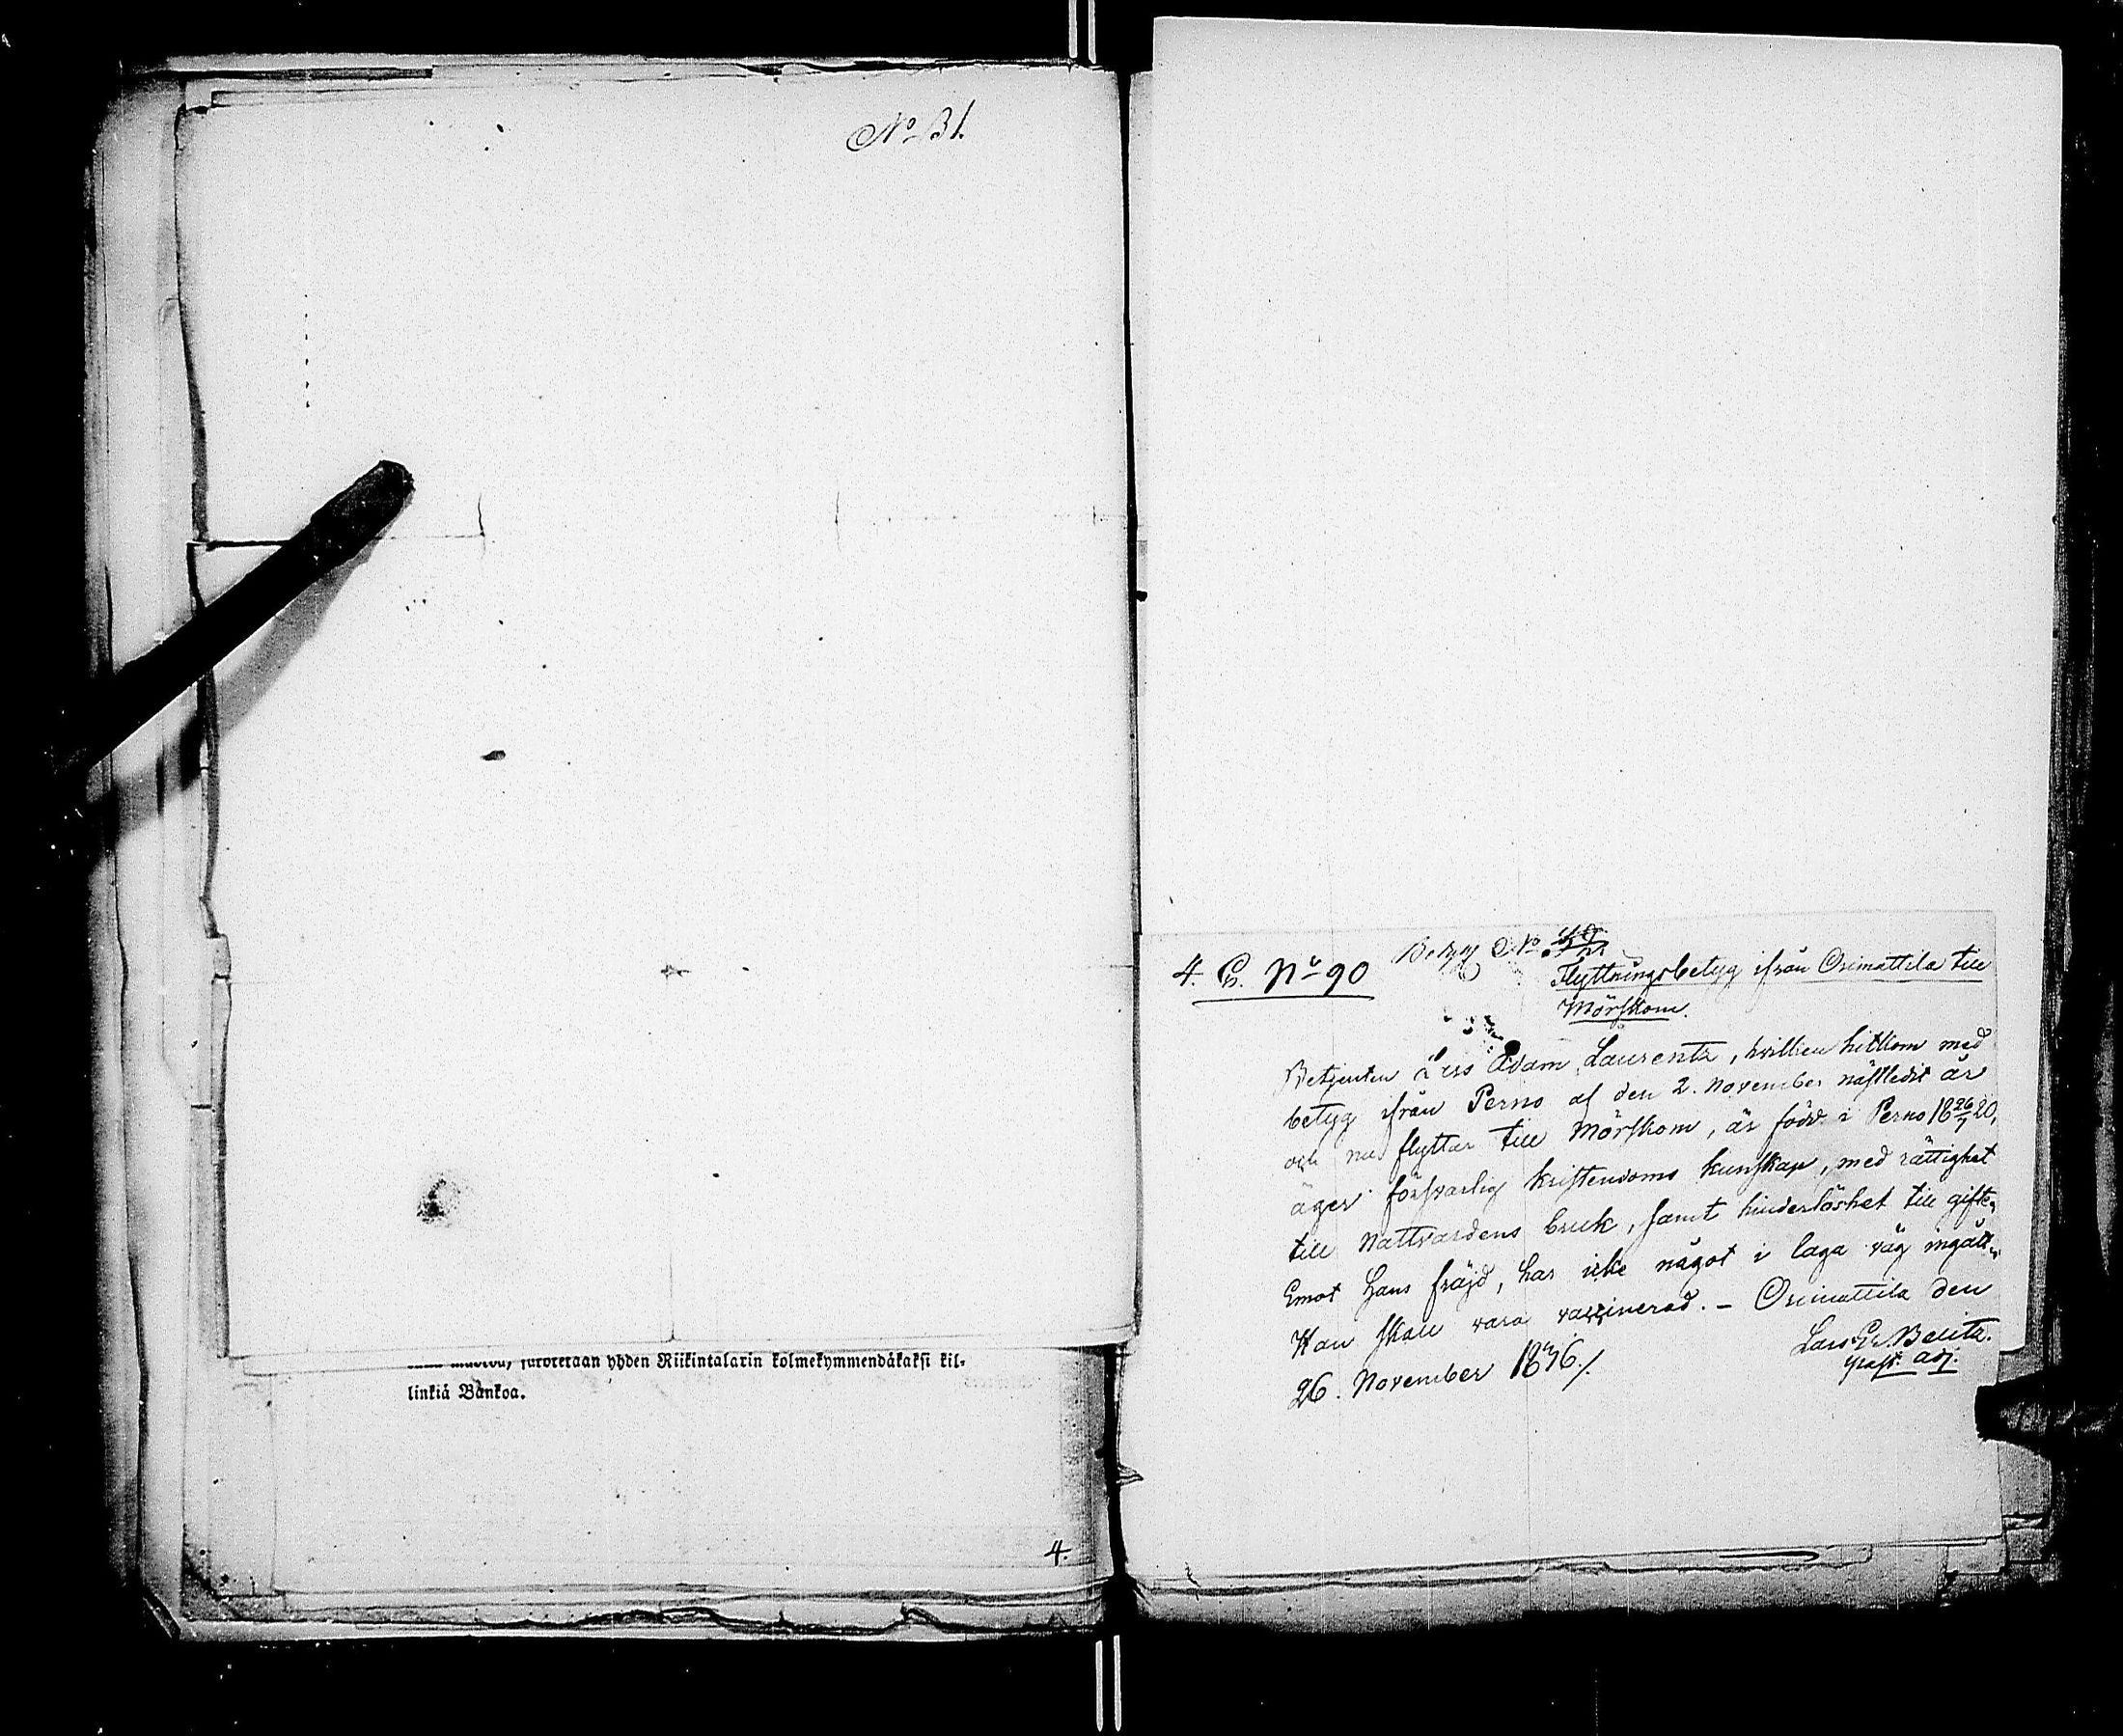 No 31.
yhden Riikintalarin kolmekymmendäkaksi kil-
linkiä Bankoa.
4.
4. B. No 90
Betyg No
Flyttningsbetyg ifrån Orimattila till
Mörskom.
Betjenten Adam Laurentz, hvilken hitkom med
betyg ifrån Perno af den 2. November nästledit år
och nu flyttar till Mörskom, är född i Perno 18 26/7 20,
äger försvarlig kristendoms kunskap, med rättighet
till Nattvardens bruk, samt hinderlöshet till gifte,
Emot hans fräjd, har icke något i laga väg ingått.
Han skall vara vaccinerad. – Orimattila den
26. November 1846./.
Lars Gr. Belitz.
past. adj.